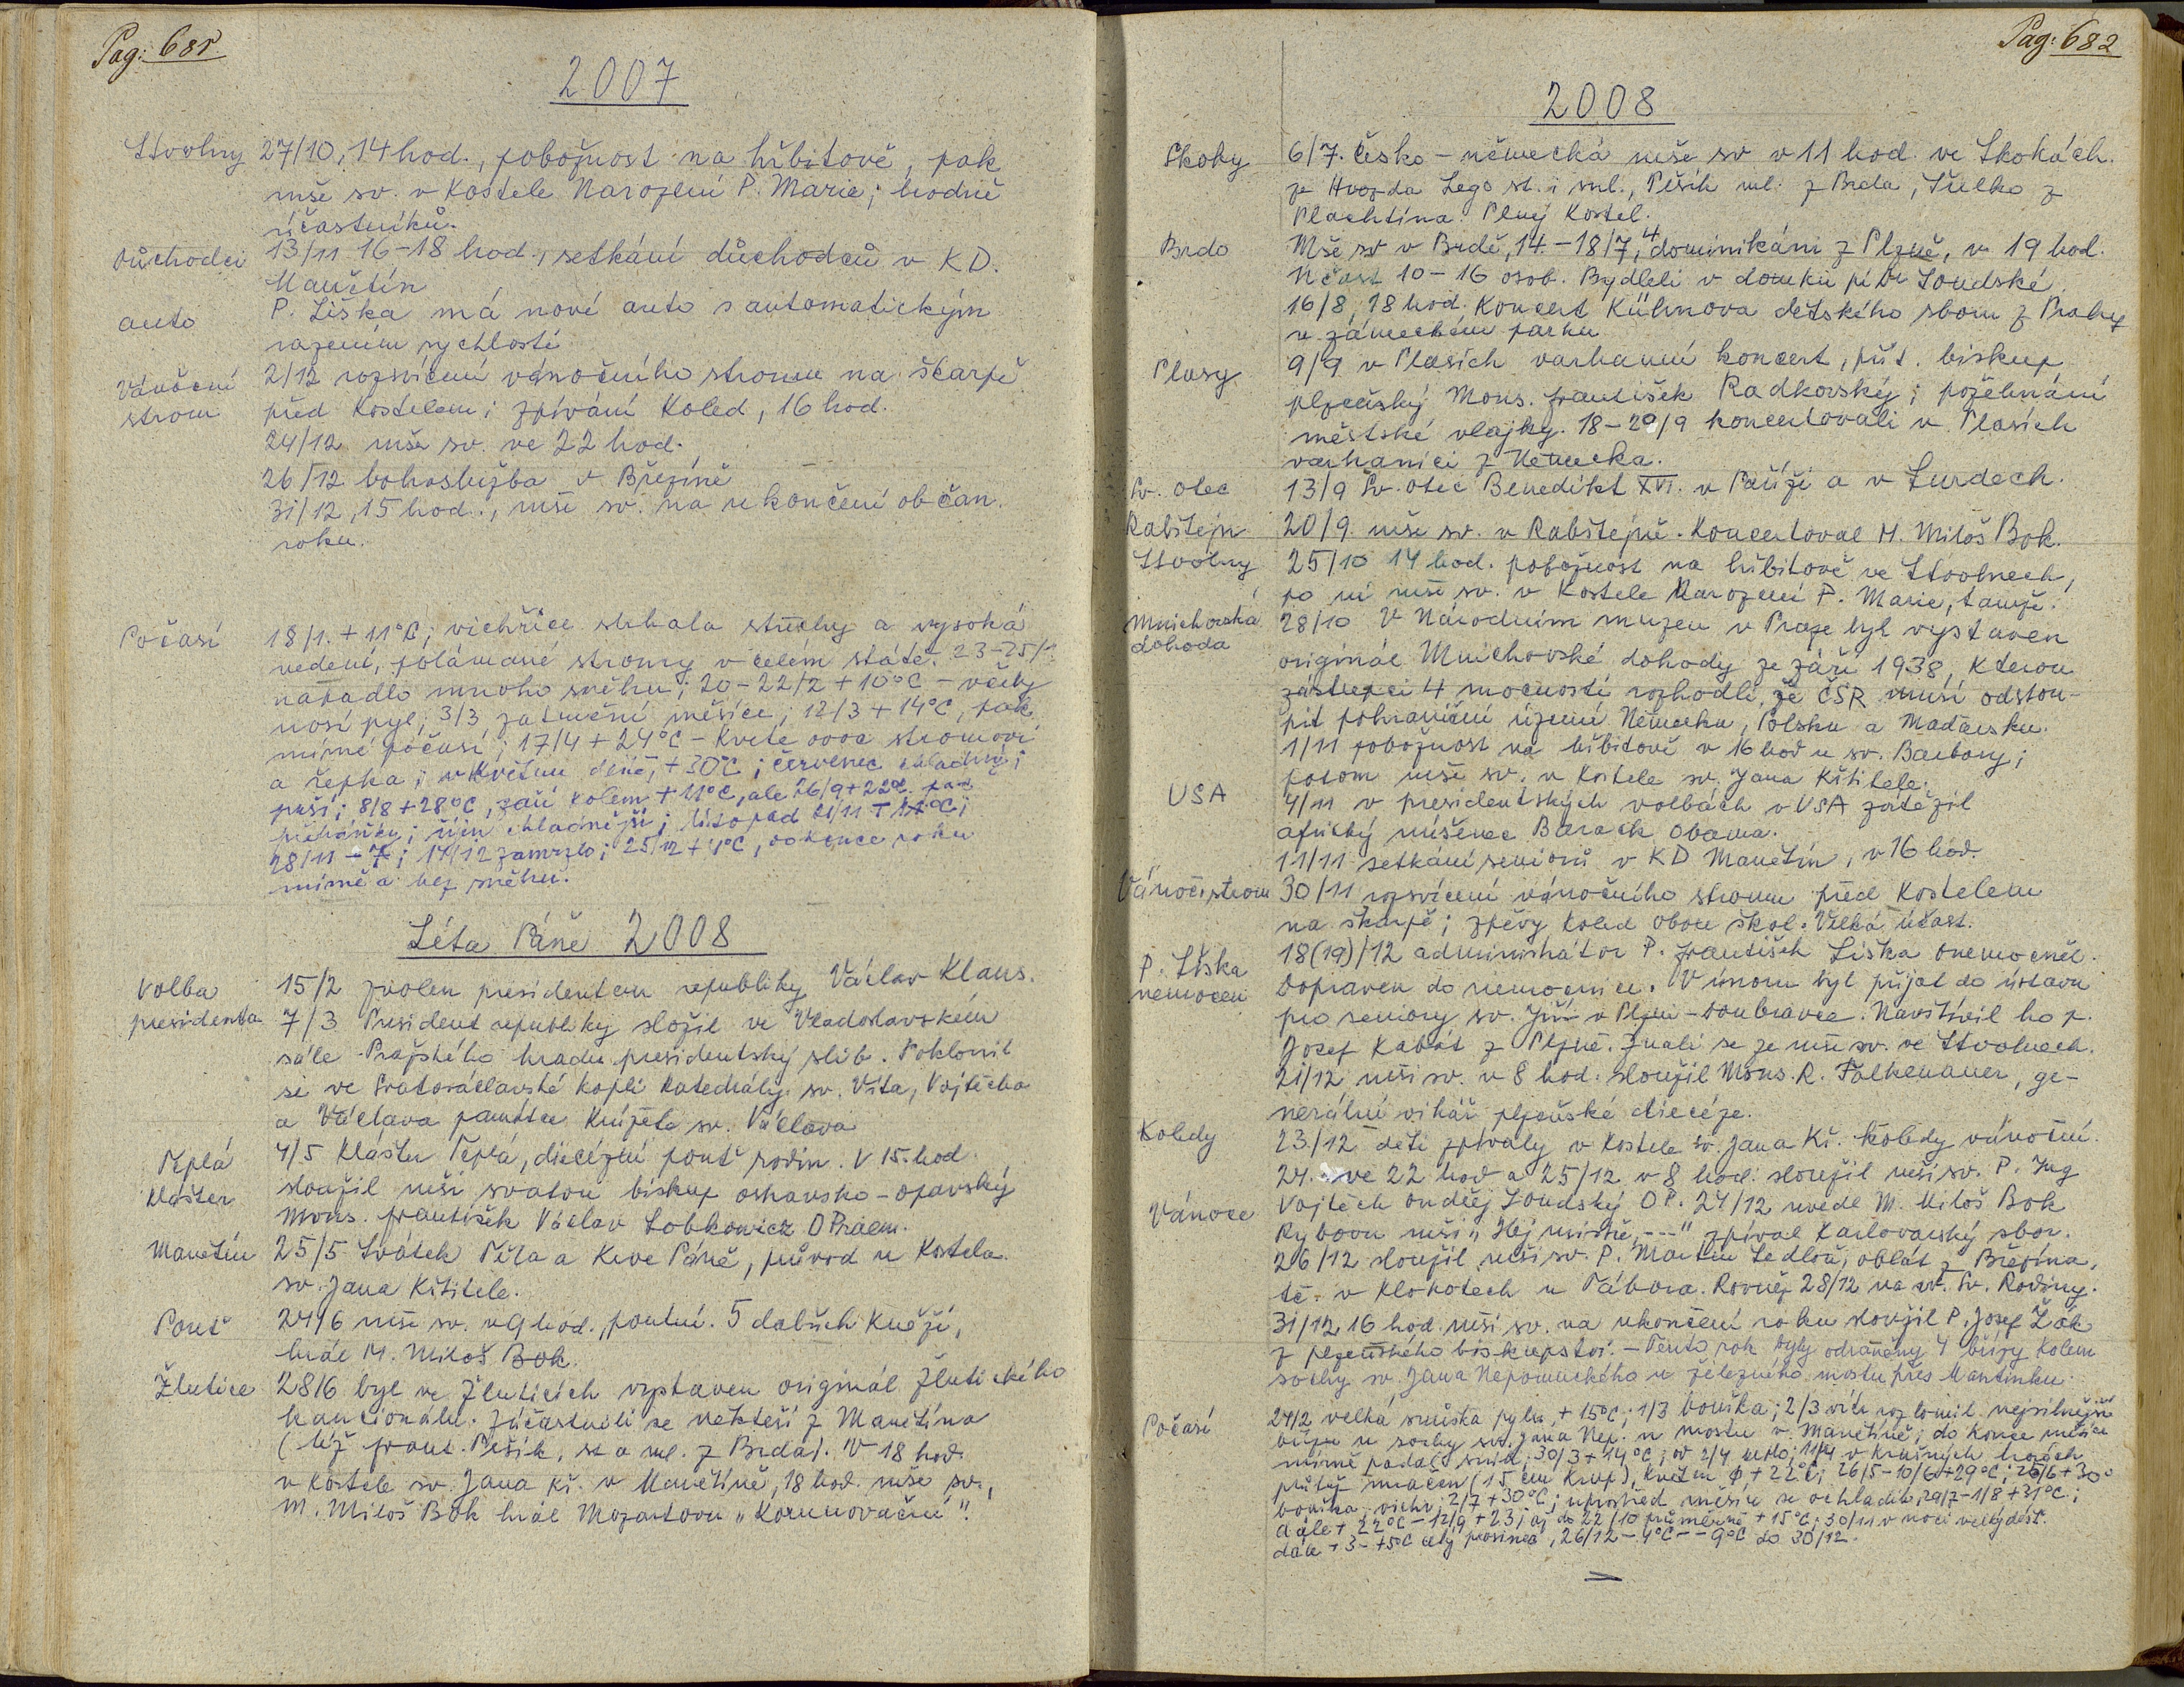 Pag: 681
2007
Stvolny 27/10, 14 hod., pobožnost na hřbitově, pak
mše sv. v kostele Narození P. Marie; hodně
účastníků.
důchodci 13/11 16-18 hod., setkání důchodců v KD.
Manětín
auto P. Liška má nové auto s automatickým
řazením rychlostí
Vánoční 2/12 rozsvícení vánočního stromu na škarpě
strom před kostelem; zpívání koled, 16 hod.
24/12 mše sv. ve 22 hod.
26/12 bohoslužba v Březíně
31/12, 15 hod., mše sv. na ukončení občan.
roku.
Počasí 18/1. + 11°C; vichřice strhala střechy a vysoká
vedení, polámané stromy v celém státě. 23-25/1
napadlo mnoho sněhu; 20-22/2 + 10°C - včely
nosí pyl; 3/3 zatmění měsíce; 12/3 + 14°C, pak
mírné počasí; 17/4 + 24°C - kvete ovoc. stromoví
a řepka; v květnu deště, + 30°C; červenec chladný;
prší; 8/8 + 28°C, září kolem + 11°C, ale 26/9 + 22°C, pak
přeháňky; říjen chladnější; listopad
28/11 - 7; 17/12 zamrzlo; 25/12 + 4°C, do konce roku
mírně a bez sněhu.
Léta Páně 2008
Volba 15/2 zvolen presidentem republiky Václav Klaus.
presidenta 7/3 President republiky složil ve Vladislavském
sále Pražského hradu presidentský slib. Poklonil
se ve Svatováclavské kapli katedrály sv. Víta, Vojtěcha
a Václava památce knížete sv. Václava
Teplá 4/5 Klášter Teplá, diecézní pouť rodin. V 15. hod
klášter sloužil mši svatou biskup ostravsko-opavský
Mons. František Václav Lobkowicz OPraem.
Manětín 25/5 Svátek Těla a Krve Páně, průvod u kostela
sv. Jana Křtitele.
Pouť 24/6 mše sv. v 9 hod., poutní. 5 dalších kněží,
hrál M. Miloš Bok.
Žlutice 28/6 byl ve Žluticích vystaven originál Žlutického
kancionálu. Zúčastnili se někteří z Manětína
(též Frant. Pešík, st a ml. z Brda). V 18 hod.
v kostele sv. Jana Kř. v Manětíně, 18 hod. mše sv.,
M. Miloš Bok hrál Mozartovu „Korunovační“.
Pag: 682
2008
Skoky 6/7. Česko-německá mše sv v 11 hod. ve Skokách.
ze Hvozda Lego st. i ml., Pešík ml. z Brda, Šulko z
Plachtína. Plný kostel.
Brdo Mše sv v Brdě, 14.-18/7, 4 dominikáni z Plzně, v 19 hod.
Účast 10-16 osob. Bydleli v domku pí Dr Loudské.
16/8, 18 hod. koncert Kühnova dětského sboru z Prahy
v zámeckém parku
Plasy 9/9 v Plasích varhanní koncert, přít. biskup
plzeňský Mons. František Radkovský; požehnání
městské vlajky. 18-20/9 koncertovali v Plasích
varhaníci z Německa.
Sv. otec 13/9 Sv. otec Benedikt XVI. v Paříži a v Lurdech.
Rabštejn 20/9. mše sv. v Rabštejně. Koncertoval M. Miloš Bok.
Stvolny 25/10 14 hod. pobožnost na hřbitově ve Stvolnech,
po ní mše sv. v kostele Narození P. Marie, tamže.
Mnichovská 28/10 V Národním muzeu v Praze byl vystaven
dohoda originál Mnichovské dohody ze září 1938, kterou
zástupci 4 mocností rozhodli, že ČSR musí odstou-
pit pohraniční území Německu, Polsku a Maďarsku.
1/11 pobožnost na hřbitově v 16 hod u sv. Barbory;
potom mše sv. v kostele sv. Jana Křtitele.
USA 4/11 v presidentských volbách v USA zvítězil
africký míšenec Barack Obama.
11/11 setkání seniorů v KD Manětín, v 16 hod.
Vánoč. strom 30/11 rozsvícení vánočního stromu před kostelem
na škarpě; zpěvy koled obou škol. Velká účast.
P. Liška 18(19)/12 administrátor P. František Liška onemocněl.
nemocen Dopraven do nemocnice. V únoru byl přijat do ústavu
pro seniory sv. Jiří v Plzni-Doubravce. Navštívil ho p.
Josef Kabát z Plzně. Znali se ze mše sv. ve Stvolnech.
21/12 mši sv. v 8 hod. sloužil Mons. R. Falkenauer, ge-
nerální vikář plzeňské diecéze.
Koledy 23/12 děti zpívaly v kostele sv. Jana Kř. koledy vánoční.
24. ve 22 hod a 25/12 v 8 hod. sloužil mši sv. P. Ing
Vánoce Vojtěch Ondřej Soudský OP. 24/12 uvedl M. Miloš Bok
Rybovu mši „Hej mistře, ---“ zpíval Karlovarský sbor.
26/12 sloužil mši sv. P. Martin Sedloň, oblát z Březína,
tč. v Klokotech u Tábora. Rovněž 28/12 na sv. Sv. Rodiny.
31/12 16 hod. mši sv. na ukončení roku sloužil P. Josef Žák
z plzeňského biskupství. - Tento rok byly odstraněny 4 břízy kolem
sochy sv. Jana Nepomuckého u železného mostu přes Manětínku.
Počasí 24/2 velká snůška pylu, + 15°C; 1/3 bouřka; 2/3 vítr rozlomil nejsilnější
břízu u sochy sv. Jana Nep. u mostu v Manětíně; do konce měsíce
mírně padal sníh; 30/3 + 14°C; od 2/4 teplo; 11/4 v Krušných horách
květen ϕ + 22°C; 26/5-10/6 + 29°C; 25/6 + 30°
bouřka, vichr; 2/7 + 30°C; uprostřed měsíce se ochladilo; 29/7-1/8 + 31°C;
dále + 22°C - 12/9 + 23; až do 22/10 průměrně + 15°C; 30/11 v noci velký déšť.
dále + 3 - +5°C celý prosinec, 26/12 - 4°C - - 9°C do 30/12.